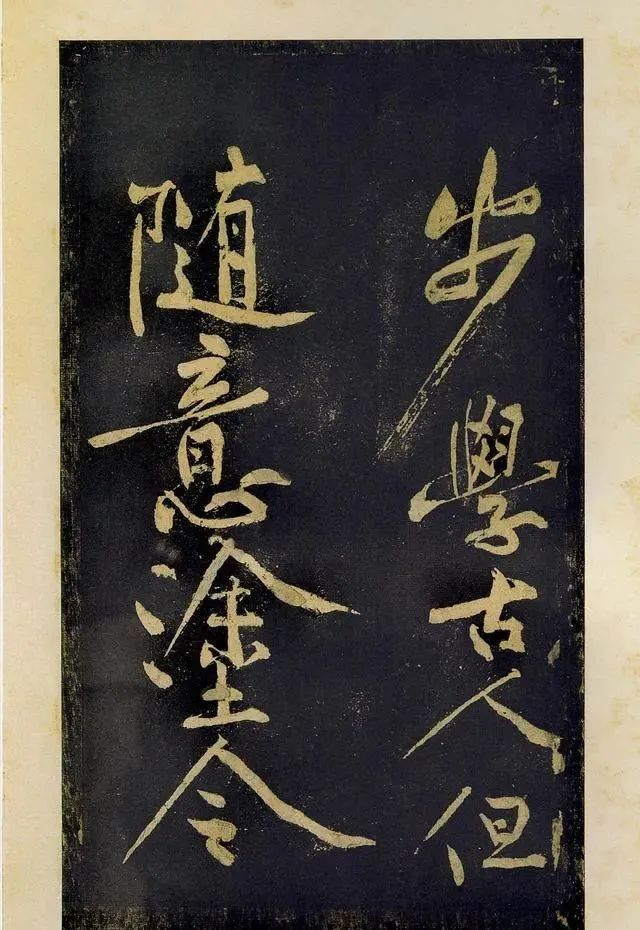 步學古人但
随意塗令